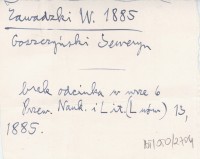 Zawadzki W. 1885
Goszczyński Seweryn
brak odcinka w nrze 6
Przew. Nauk. i Lit. (Lwów) 13,
1885.